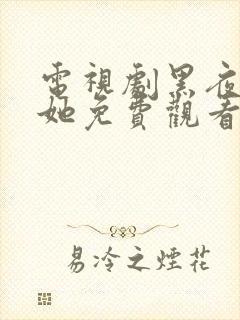 電視劇黑夜
她免費觀看
易冷之煙花